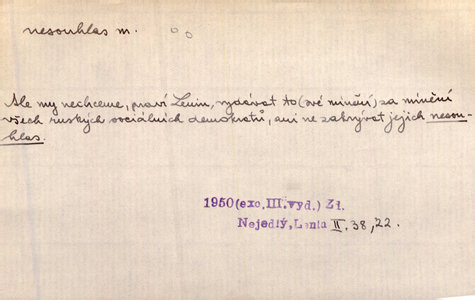 nesouhlas m.
Ale my nechceme, praví Lenin, vydávat to (své mínění) za mínění
všech ruských sociálních demokratů, ani ne zakrývat jejich nesou-
hlas.
1950 (exc. III. vyd.) Zl.
Nejedlý, Lenin II. 38, 22.